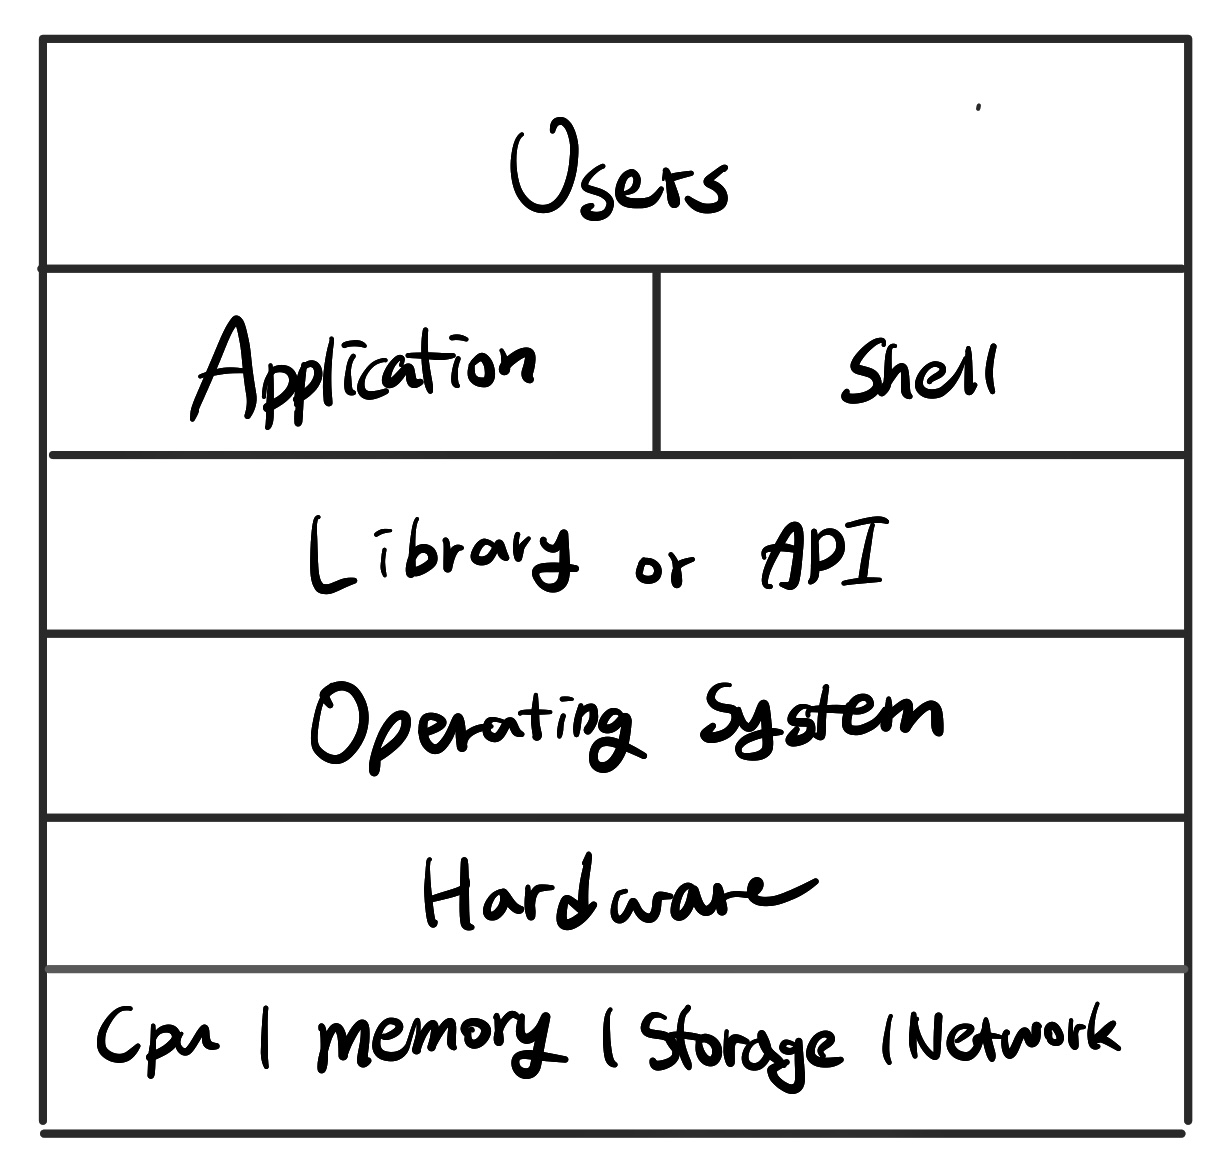 Users
Application Shell
Library or API
Operating System
Hardware
Cpu | memory | Storage | Network